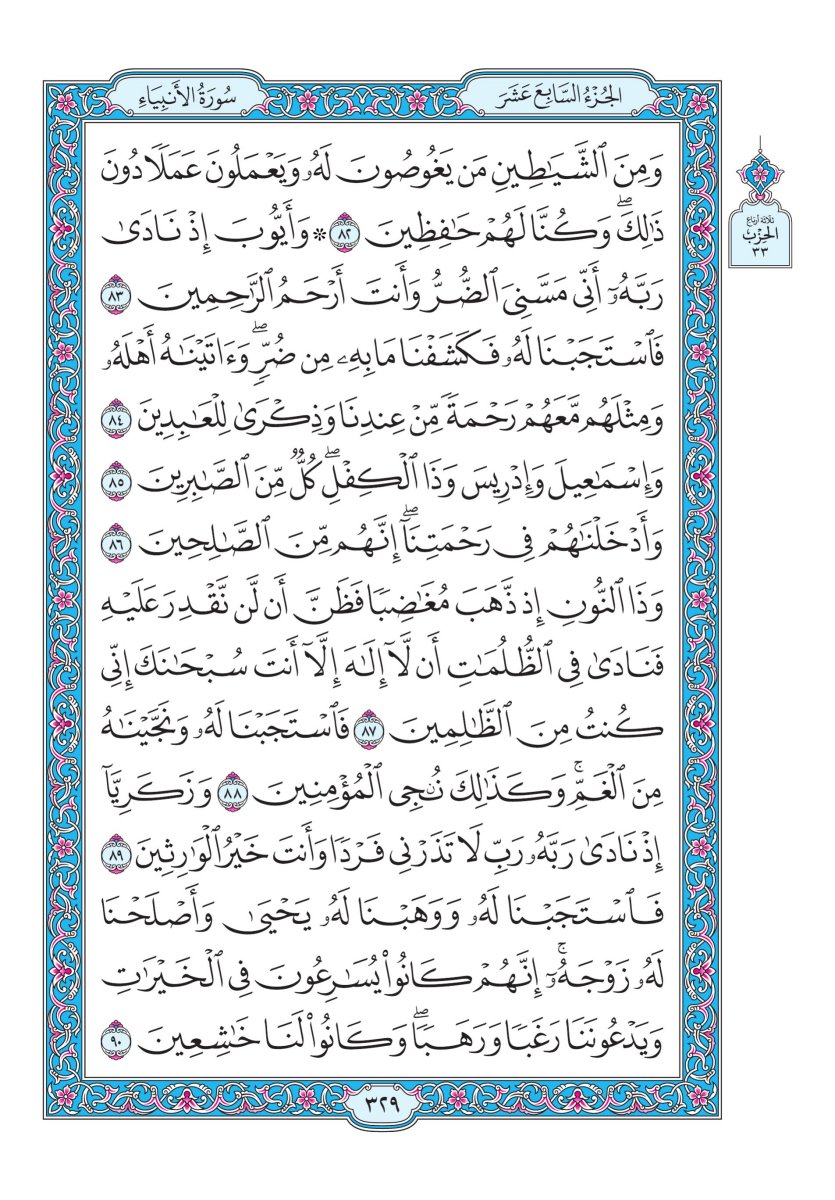 الجُزْءُ السَّابِعَ عَشَرَ
سُورَةُ الأَنبِيَاءِ
وَمِنَ ٱلشَّيَٰطِينِ مَن يَغُوصُونَ لَهُۥ وَيَعْمَلُونَ عَمَلًا دُونَ
ذَٰلِكَۖ وَكُنَّا لَهُمْ حَٰفِظِينَ ٨٢ ۞ وَأَيُّوبَ إِذْ نَادَىٰ
رَبَّهُۥٓ أَنِّي مَسَّنِيَ ٱلضُّرُّ وَأَنتَ أَرْحَمُ ٱلرَّٰحِمِينَ ٨٣
فَٱسْتَجَبْنَا لَهُۥ فَكَشَفْنَا مَا بِهِۦ مِن ضُرٍّۖ وَءَاتَيْنَٰهُ أَهْلَهُۥ
وَمِثْلَهُم مَّعَهُمْ رَحْمَةً مِّنْ عِندِنَا وَذِكْرَىٰ لِلْعَٰبِدِينَ ٨٤
وَإِسْمَٰعِيلَ وَإِدْرِيسَ وَذَا ٱلْكِفْلِۖ كُلٌّ مِّنَ ٱلصَّٰبِرِينَ ٨٥
وَأَدْخَلْنَٰهُمْ فِي رَحْمَتِنَآۖ إِنَّهُم مِّنَ ٱلصَّٰلِحِينَ ٨٦
وَذَا ٱلنُّونِ إِذ ذَّهَبَ مُغَٰضِبًا فَظَنَّ أَن لَّن نَّقْدِرَ عَلَيْهِ
فَنَادَىٰ فِي ٱلظُّلُمَٰتِ أَن لَّآ إِلَٰهَ إِلَّآ أَنتَ سُبْحَٰنَكَ إِنِّي
كُنتُ مِنَ ٱلظَّٰلِمِينَ ٨٧ فَٱسْتَجَبْنَا لَهُۥ وَنَجَّيْنَٰهُ
مِنَ ٱلْغَمِّۚ وَكَذَٰلِكَ نُۨجِي ٱلْمُؤْمِنِينَ ٨٨ وَزَكَرِيَّآ
إِذْ نَادَىٰ رَبَّهُۥ رَبِّ لَا تَذَرْنِي فَرْدًا وَأَنتَ خَيْرُ ٱلْوَٰرِثِينَ ٨٩
فَٱسْتَجَبْنَا لَهُۥ وَوَهَبْنَا لَهُۥ يَحْيَىٰ وَأَصْلَحْنَا
لَهُۥ زَوْجَهُۥٓۚ إِنَّهُمْ كَانُوا۟ يُسَٰرِعُونَ فِي ٱلْخَيْرَٰتِ
وَيَدْعُونَنَا رَغَبًا وَرَهَبًاۖ وَكَانُوا۟ لَنَا خَٰشِعِينَ ٩٠
ثلاثة أرباع
الحِزْب
٣٣
٣٢٩